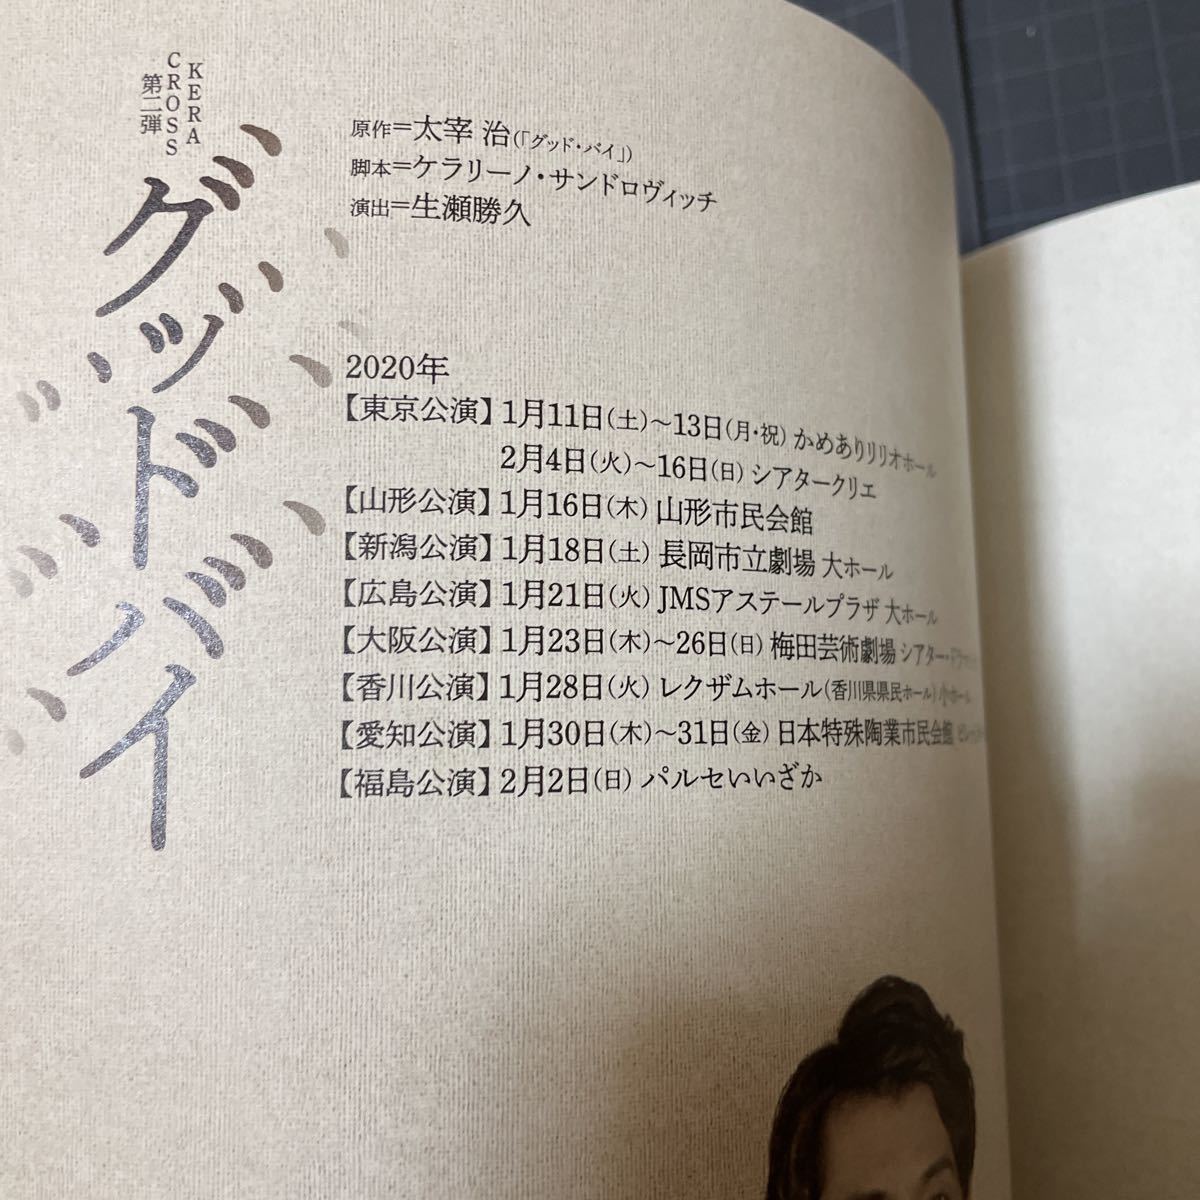 KERA
CROSS
第二弾
グッドバイ
原作=太宰 治(「グッド・バイ」)
脚本=ケラリーノ・サンドロヴィッチ
演出=生瀬勝久
2020年
【東京公演】1月11日(土)〜13日(月・祝) かめありリリオホール
2月4日(火)〜16日(日) シアタークリエ
【山形公演】1月16日(木) 山形市民会館
【新潟公演】1月18日(土) 長岡市立劇場 大ホール
【広島公演】1月21日(火) JMSアステールプラザ 大ホール
【大阪公演】1月23日(木)〜26日(日) 梅田芸術劇場 シアター・
【香川公演】1月28日(火) レクザムホール(香川県県民ホール) 小ホール
【愛知公演】1月30日(木)〜31日(金) 日本特殊陶業市民会館
【福島公演】2月2日(日) パルセいいざか